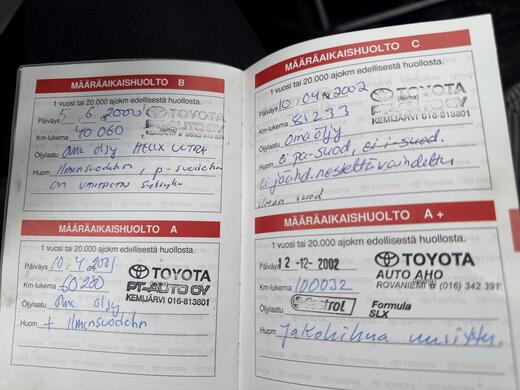 MÄÄRÄAIKAISHUOLTO B
1 vuosi tai 20.000 ajokm edellisestä huollosta.
Päiväys 5.6.2000
TOYOTA
(leima)
Km-lukema 40 060
Öljylaatu oma öljy HELIX ULTRA
Huom ilmansuodatin, p-suodatin
on
MÄÄRÄAIKAISHUOLTO A
1 vuosi tai 20.000 ajokm edellisestä huollosta.
Päiväys 10.4.2001
TOYOTA
PT-AUTO OY
KEMIJÄRVI 016-813801
Km-lukema 60200
Öljylaatu oma öljy
Huom + ilmansuodatin
MÄÄRÄAIKAISHUOLTO C
1 vuosi tai 20.000 ajokm edellisestä huollosta.
Päiväys 10.04.2002
TOYOTA
(leima)
PT-AUTO OY
KEMIJÄRVI 016-813801
Km-lukema 81233
Öljylaatu oma öljy
Huom ei pa-suod, ei i-suod.
ei jäähd.nestettä vaihdettu
ilman suod
MÄÄRÄAIKAISHUOLTO A+
1 vuosi tai 20.000 ajokm edellisestä huollosta.
Päiväys 12-12-2002
TOYOTA
AUTO AHO
ROVANIEMI ☎ (016) 342 391
Km-lukema 100032
Öljylaatu Castrol Formula
SLX
Huom Jakohihna uusittu